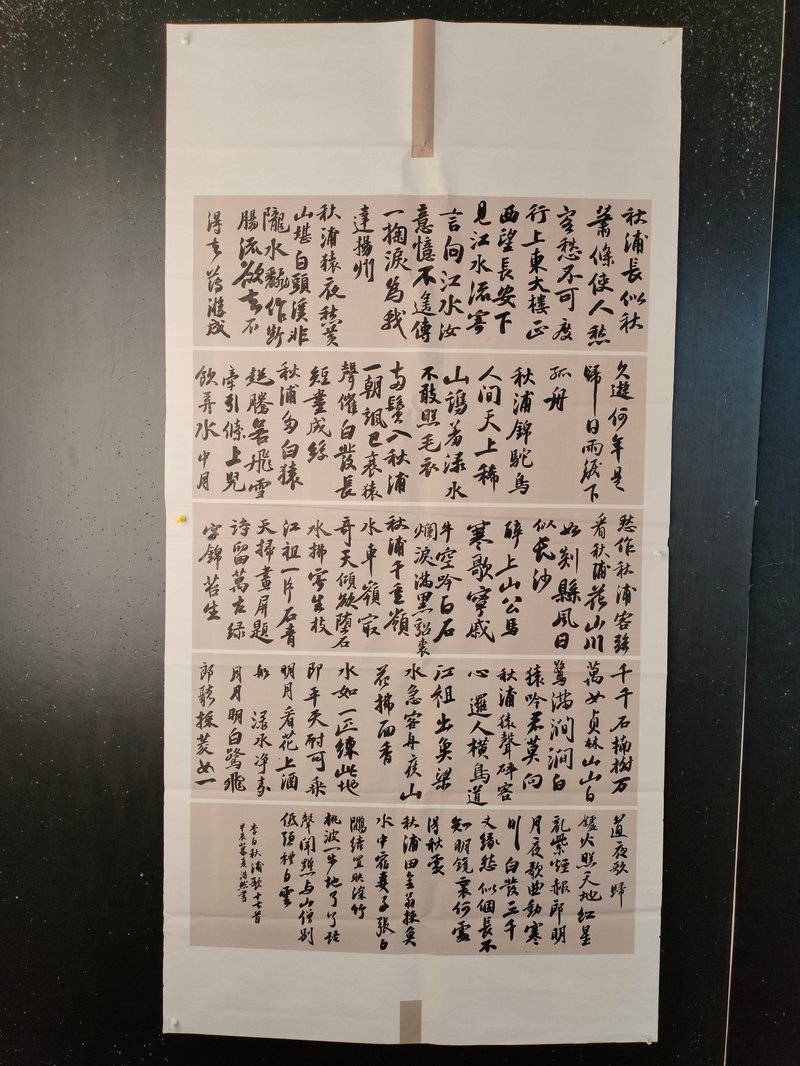 秋浦長似秋
蕭條使人愁
客愁不可度
行上東大樓正
西望長安下
見江水流寄
言向江水汝
意憶不遙傳
一掬淚為我
達揚州
秋浦猿夜愁黄
山堪白頭溪非
隴水翻作斷
腸流欲去不
得去薄遊成
久遊何年是
歸日雨淚下
孤舟
秋浦錦駝鳥
人間天上稀
山鷄羞淥水
不敢照毛衣
兩鬢入秋浦
一朝颯已衰猿
聲催白髮長
短盡成絲
秋浦多白猿
超騰若飛雪
牽引條上兒
飲弄水中月
愁作秋浦客強
看秋浦花山川
如剡縣風日
似長沙
醉上山公馬
寒歌寧戚
牛空吟白石
爛淚滿黑貂裘
秋浦千重嶺
水車嶺最
奇天傾欲墮石
水拂寄生枝
江祖一片石青
天掃畫屏題
詩留萬古綠
字錦苔生
千千石楠樹万
萬女貞林山山白
鷺滿澗澗白
猿吟君莫向
秋浦猿聲碎客
心 邏人橫鳥道
江祖出魚梁
水急客舟疾山
花拂面香
水如一匹練此地
即平天耐可乘
明月看花上酒
船 淥水净素
月月明白鷺飛
郎聽採菱女一
道夜歌歸
鑪火照天地紅星
亂紫煙赧郎明
月夜歌曲動寒
川 白髮三千
丈緣愁似個長不
知明鏡裏何處
得秋霜
秋浦田舍翁採魚
水中宿妻子張白
鷴結罝映深竹
桃波一步地了了語
聲聞黯与山僧別
低頭禮白雲
李白秋浦歌十七首
甲辰 夏浩然書